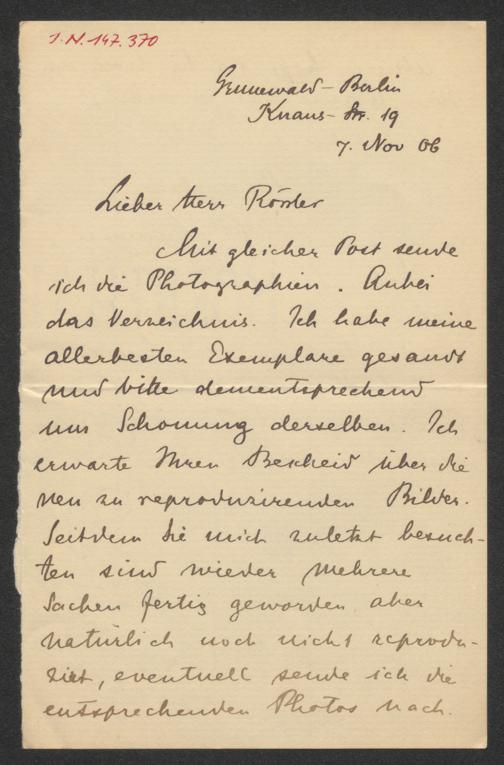 I.N. 147.370
Grunewald-Berlin
Knaus-Str. 19
7. Nov 06
Lieber Herr Rössler
Mit gleicher Post sende
ich die Photographien. Anbei
das Verzeichnis. Ich habe meine
allerbesten Exemplare gesandt
und bitte dementsprechend
um Schonung derselben. Ich
erwarte Ihren Bescheid über die
neu zu reproduzirenden Bilder.
Seitdem Sie mich zuletzt besuch-
ten sind wieder mehrere
Sachen fertig geworden aber
natürlich noch nicht reprodu-
ziert, eventuell sende ich die
entsprechenden Photos nach.